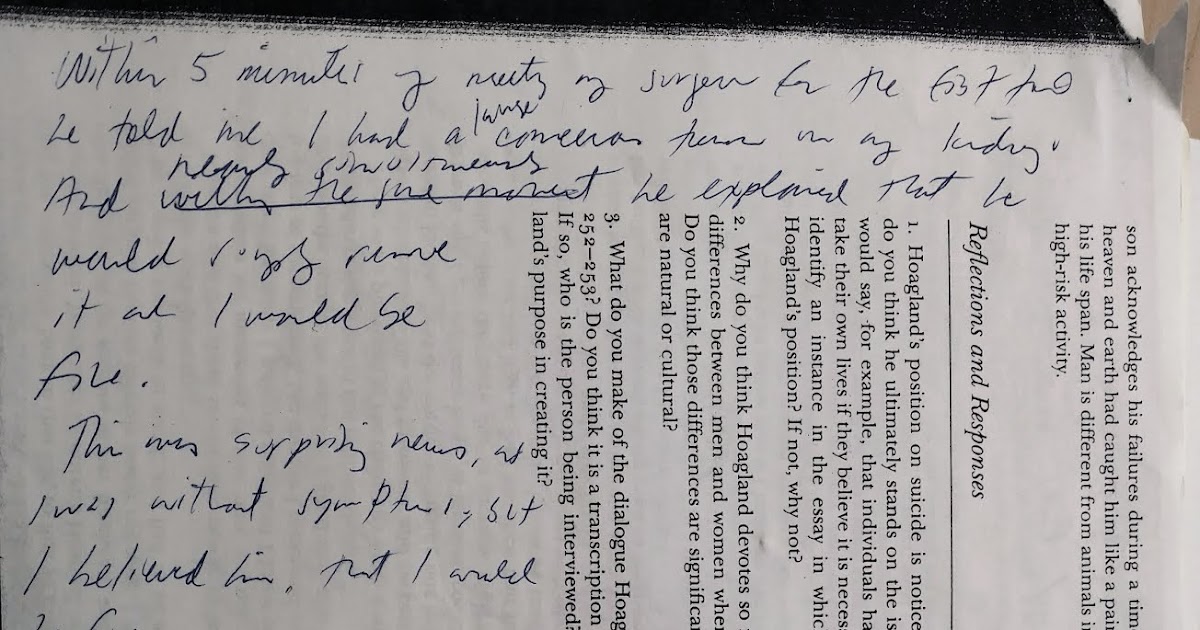 Within 5 minutes of meeting my surgeon for the first time
he told me I had a large cancerous tumor on my kidney.
And nearly simultaneously he explained that he
would simply remove
it and I would be
fine.
This was surprising news, as
I was without symptoms, but
I believed him, that I would
son acknowledges his failures during a tim
heaven and earth had caught him like a pair
his life span. Man is different from animals i
high-risk activity.
Reflections and Responses
1. Hoagland's position on suicide is notice
do you think he ultimately stands on the is
would say, for example, that individuals ha
take their own lives if they believe it is neces
identify an instance in the essay in whic
Hoagland's position? If not, why not?
2. Why do you think Hoagland devotes so
differences between men and women when
Do you think those differences are significa
are natural or cultural?
3. What do you make of the dialogue Hoag
252–253? Do you think it is a transcription
If so, who is the person being interviewed?
land's purpose in creating it?